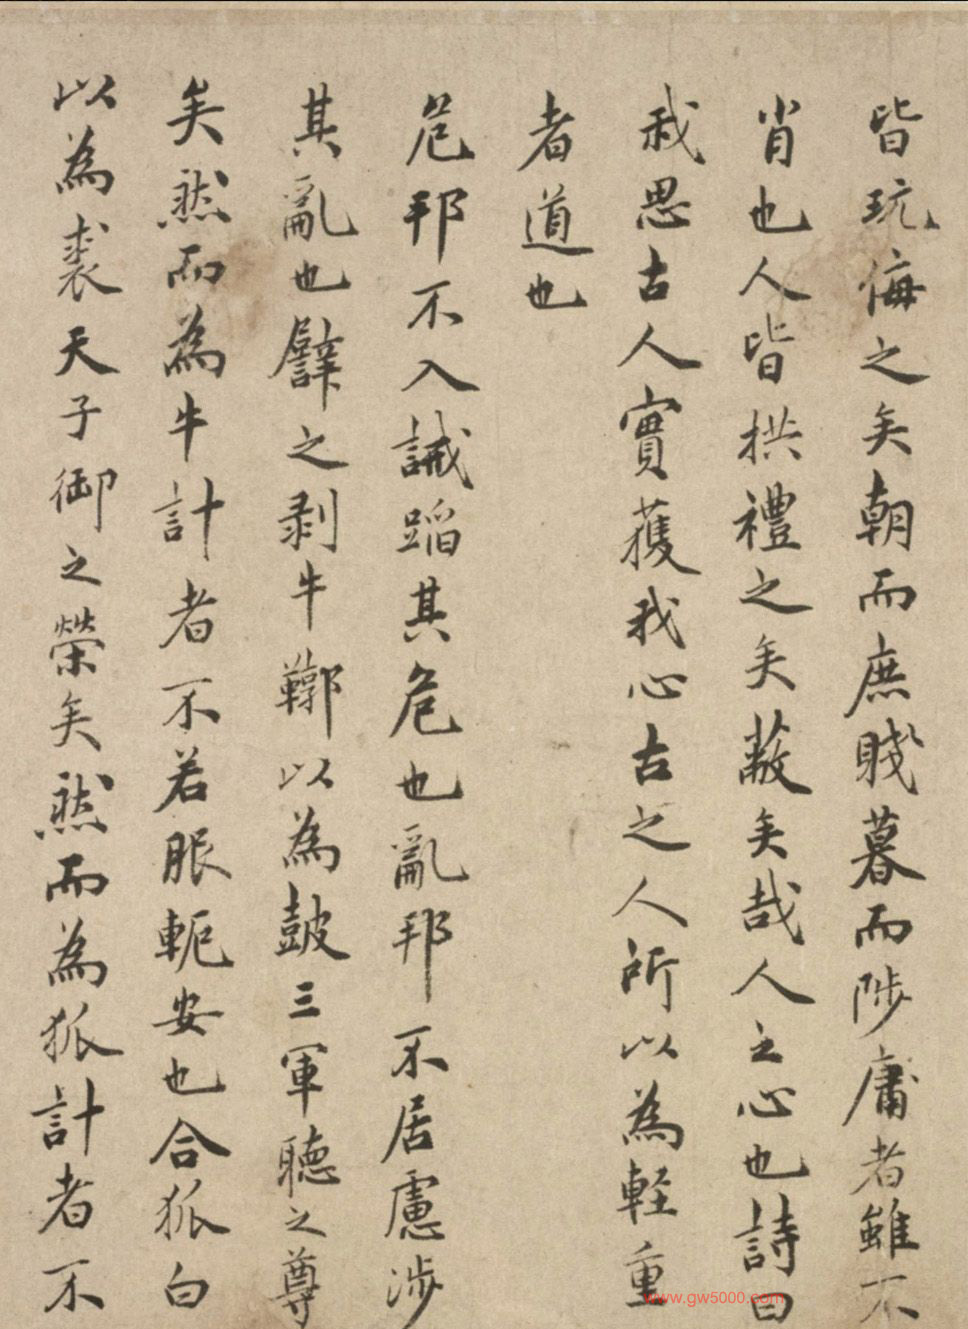 皆玩侮之矣朝而庶賤暮而陟庸者雖不
肖也人皆拱禮之矣蔽矣哉人之心也詩曰
我思古人實獲我心古之人所以為軽重
者道也
危邦不入誡蹈其危也亂邦不居慮涉
其亂也譬之剥牛鞹以為皷三軍聽之尊
矣然而為牛計者不若服軛安也合狐白
以為裘天子御之榮矣然而為狐計者不
www.gw5000.com